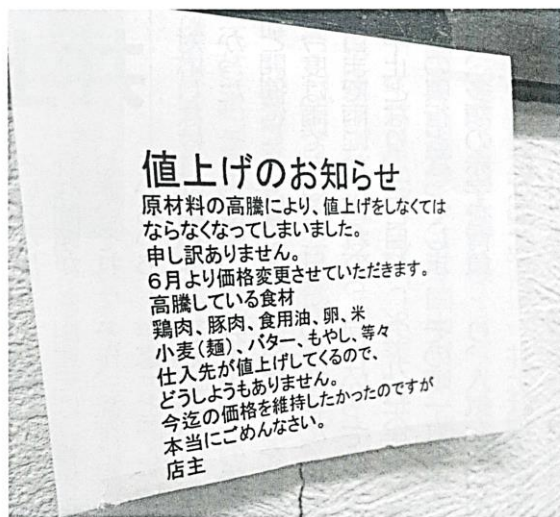 値上げのお知らせ
原材料の高騰により、値上げをしなくては
ならなくなってしまいました。
申し訳ありません。
6月より価格変更させていただきます。
高騰している食材
鶏肉、豚肉、食用油、卵、米
小麦(麺)、バター、もやし、等々
仕入先が値上げしてくるので、
どうしようもありません。
今迄の価格を維持したかったのですが
本当にごめんなさい。
店主